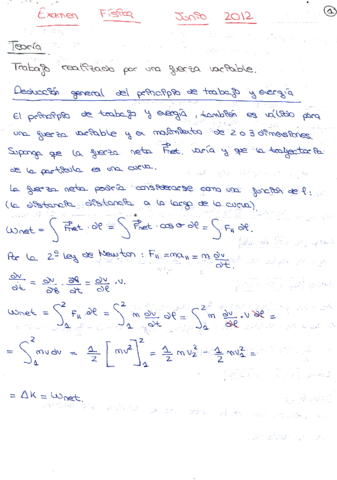 Examen Física Junio 2012
1
Teoría
Trabajo realizado por una fuerza variable.
Deducción general del principio de trabajo y energía
El principio de trabajo y energía, también es válido para
una fuerza variable y a movimiento de 2 o 3 dimensiones.
Suponga que la fuerza neta F⃗net. varía y que la trayectoria
de la partícula es una curva.
La fuerza neta podría considerarse como una función de l:
(la distancia distancia a la largo de la curva).
Wnet = ∫ F⃗net · ∂l = ∫ F⃗net · cos σ ∂l = ∫ F₁₁ ∂l.
Por la 2º Ley de Newton: F₁₁ = ma₁₁ = m ∂v/∂t.
∂v/∂t = ∂v/∂l · ∂l/∂t = ∂v/∂l · v.
Wnet = ∫₁² F₁₁ ∂l = ∫₁² m ∂v/∂t ∂l = ∫₁² m ∂v/∂l · v ∂l =
= ∫₁² mv dv = 1/2 [mv²]₁² = 1/2 m v₂² - 1/2 mv₁² =
= ΔK = Wnet.